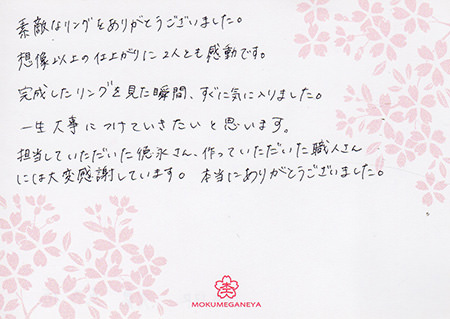 素敵なリングをありがとうございました。
想像以上の仕上がりに2人とも感動です。
完成したリングを見た瞬間、すぐに気に入りました。
一生大事につけていきたいと思います。
担当していただいた徳永さん、作っていただいた職人さん
には大変感謝しています。 本当にありがとうございました。
MOKUMEGANEYA